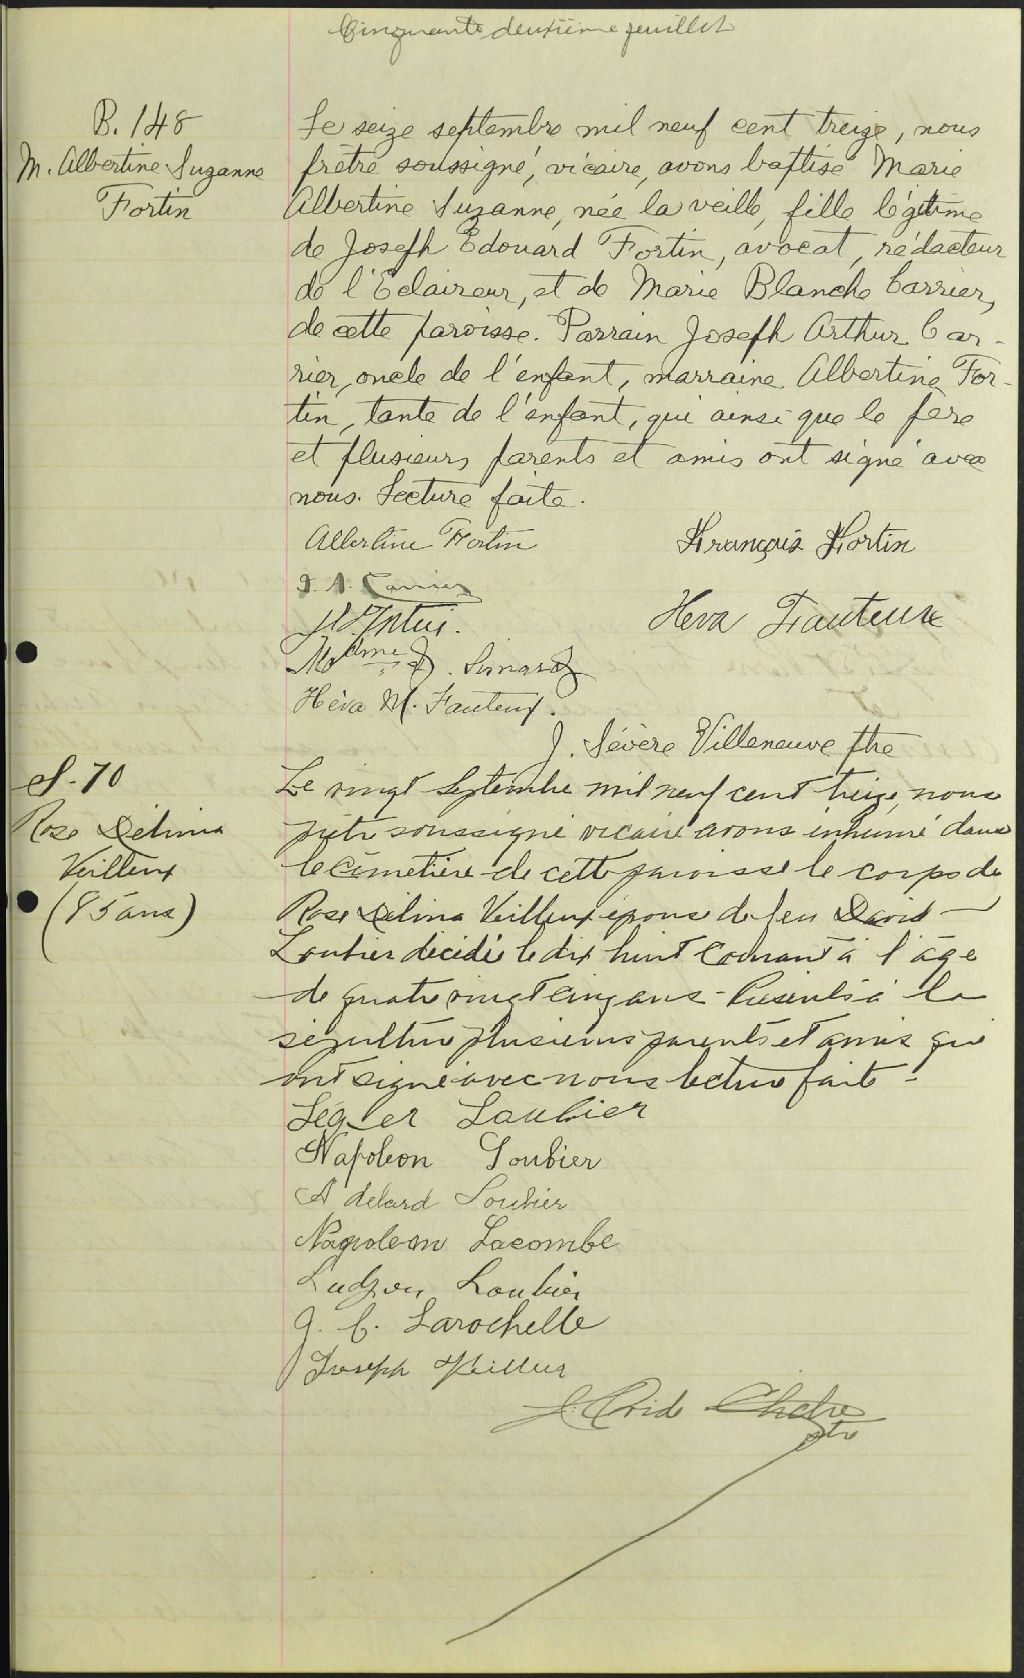 Cinquante deuxième feuillet
B. 148
M. Albertine Suzanne
Fortin
Le seize septembre mil neuf cent treize, nous
prêtre soussigné, vicaire, avons baptisé Marie
Albertine Suzanne, née la veille, fille légitime
de Joseph Edouard Fortin, avocat, rédacteur
de l'Eclaireur, et de Marie Blanche Carrier,
de cette paroisse. Parrain Joseph Arthur Car-
rier, oncle de l'enfant, marraine Albertine For-
tin, tante de l'enfant, qui ainsi que le père
et plusieurs parents et amis ont signé avec
nous. Lecture faite.
Albertine Fortin
François Fortin
J. A. Carrier
Héva Fauteux
Simard
Héva M. Fauteux.
J. Sévère Villeneuve ptre
S. 70
Rose Délima
Veilleux
(85 ans)
Le vingt Septembre mil neuf cent treize, nous
prêtre soussigné vicaire avons inhumé dans
le cimetière de cette paroisse le corps de
Rose Délima Veilleux épouse de feu David
Loubier décédée le dix huit courant à l'âge
de quatre vingt cinq ans - Présents à la
sépulture plusieurs parents et amis qui
ont signé avec nous lecture faite -
Léger Loubier
Napoléon Loubier
Adelard Loubier
Napoleon Lacombe
Loubier
J. C. Larochelle
Joseph Veilleux
ptre